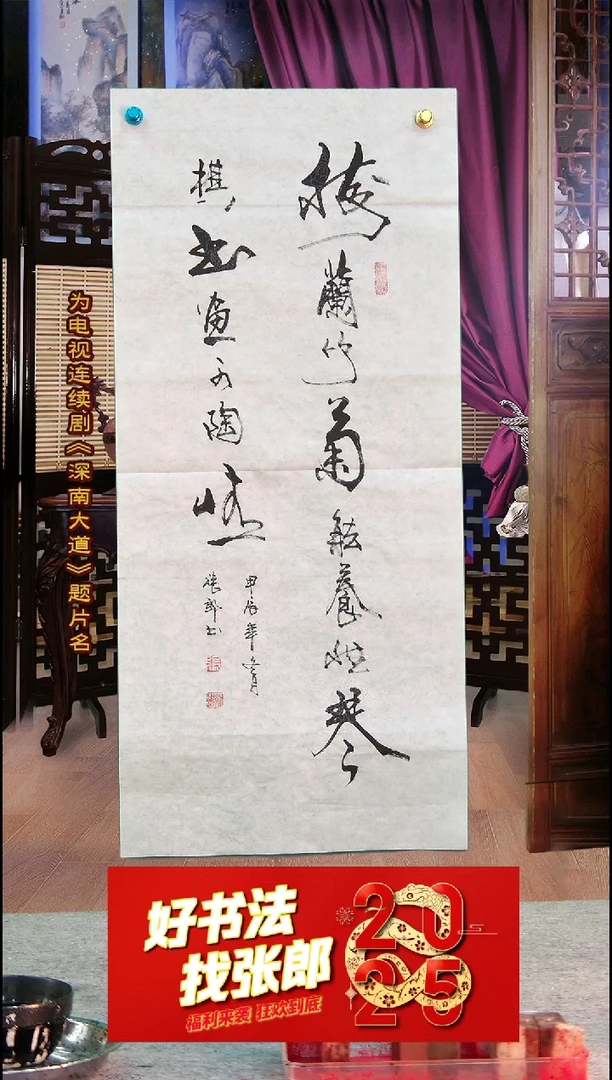 梅蘭竹菊能養性琴
棋书畫可陶情
甲辰年冬月
張郎书
为电视连续剧《深南大道》题片名
好书法
找张郎
福利来袭 狂欢到底
2025